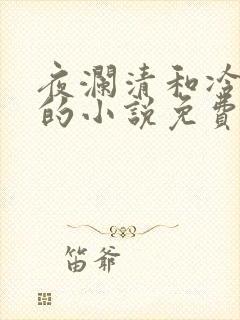 夜瀾清和冷
的小說免費
笛爺